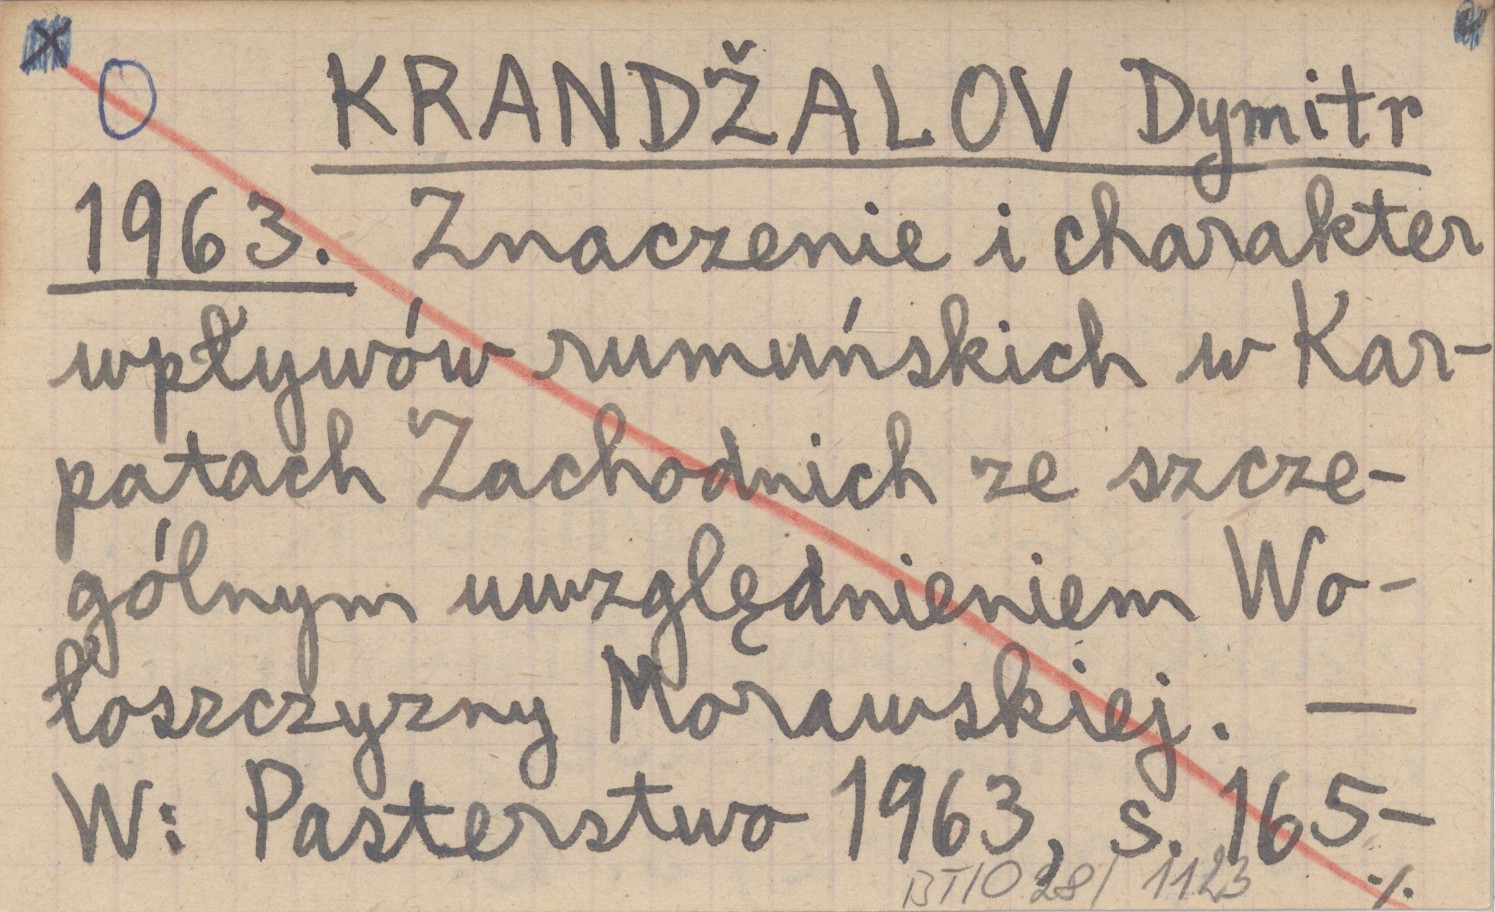 x
O KRANDŽALOV Dymitr
1963. Znaczenie i charakter
wpływów rumuńskich w Kar-
patach Zachodnich ze szcze-
gólnym uwzględnieniem Wo-
łoszczyzny Morawskiej. —
W: Pasterstwo 1963, s. 165-
BTIO 28/ 1123 ·/.